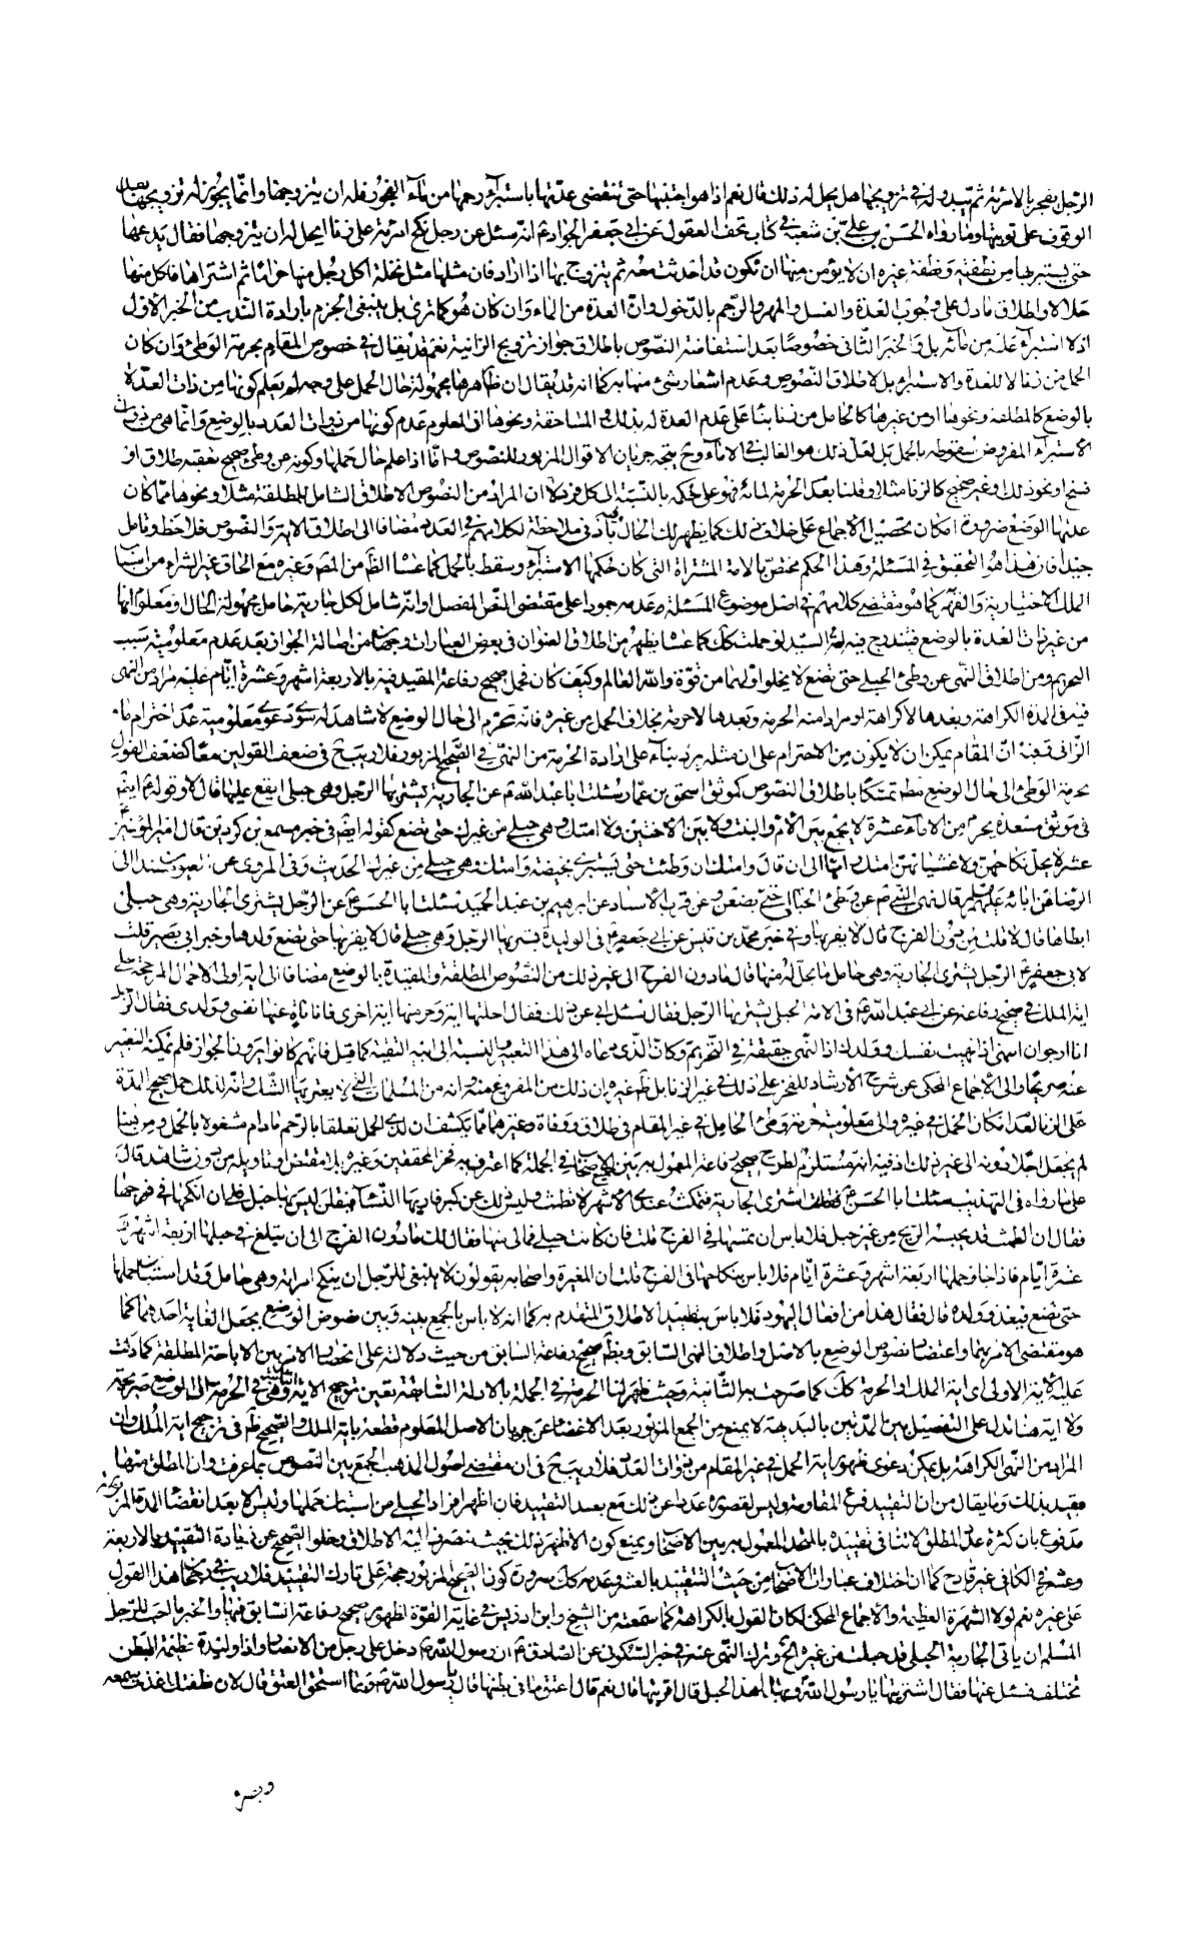 الرجل يفجر بالامرئة ثم يبدو له في تزويجها هل يحل له ذلك قال نعم اذا هو اجتنبها حتى تنقضي عدتها باستبراء رحمها من ماء الفجور فله ان يتزوجها وانما يجوز له تزويجها بعد ان
الوقوف على توبتها وما رواه الحسن بن علي بن شعبة في كتاب تحف العقول عن ابي جعفر الجواد ع انه سئل عن رجل نكح امرئة على زنا ايحل له ان يتزوجها فقال يدعها
حتى يستبرئها من نطفته ونطفة غيره اذ لا يؤمن منها ان تكون قد احدثت معه ثم يتزوج بها اذا اراد فان مثلها مثل نخلة اكل رجل منها حراما ثم اشتراها فاكل منها
حلالا واطلاق ما دل على وجوب العدة والغسل والمهر والرجم بالدخول وان العدة من الماء وان كان هو كما ترى بل ينبغي الجزم بارادة الندب من الخبر الاول
اذ لا استبراء عليه من مائه بل والخبر الثاني خصوصا بعد استفاضة النصوص باطلاق جواز تزويج الزانية نعم قد يقال في خصوص المقام بحرمة الوطئ وان كان
الحمل من زنا لا للعدة والاستبراء بل لاطلاق النصوص وعدم اشعار شئ منها به كما انه قد يقال ان ظاهرها مجهولة حال الحمل على وجه لم يعلم كونها من ذات العدة
بالوضع كالمطلقة ونحوها او من غيرها كالحامل من زنا بناء على عدم العدة له بذلك والمساحقة ونحوها اذ المعلوم عدم كونها من ذوات العدد بالوضع وانما هي من ذوات
الاستبراء المفروض سقوطه بالحمل بل لعل ذلك هو الغالب في الاماء وح يتجه جريان الاقوال المزبورة للنصوص واما اذا علم حال حملها وكونه عن وطئ صحيح تعقبه طلاق او
فسخ او نحو ذلك وغير صحيح كالزنا مثلا وقلنا بعد الحرمة لمائه فهو على حكمه بالنسبة الى كل فرد لا ان المراد من النصوص الاطلاق الشامل للمطلقة مثلا ونحوها مما كان
عدتها الوضع ضرورة امكان تحصيل الاجماع على خلاف ذلك كما يظهر لك الحال بادنى ملاحظة لكلامهم في العدد مضافا الى اطلاق الاية والنصوص فلاحظ وتامل
جيدا فان هذا هو التحقيق في المسئلة وهذا الحكم مختص بالامة المشتراة التي كان حكمها الاستبراء وسقط بالحمل كما عساه الظاهر من المصنف وغيره مع الحاق غير الشراء من اسباب
الملك الاختيارية والقهرية كما هو مقتضى كلامهم في اصل موضوع المسئلة وعدمه جمودا على مقتضى النص المفصل او انه شامل لكل جارية حامل مجهولة الحال ومعلوم انها
من غير ذات العدة بالوضع فيندرج فيه امة السيد لو حملت كك كما عساه يظهر من اطلاق العنوان في بعض العبارات وجهان من اصالة الجواز بعد عدم معلومية سبب
التحريم ومن اطلاق النهي عن وطئ الحبلى حتى تضع لا يخلو اولهما من قوة والله العالم وكيف كان فحمل صحيح رفاعة المقيد فيه بالاربعة اشهر وعشرة ايام عليه مراد من النهي
فيه في المدة الكراهة وبعدها لا كراهة او مرادا منه الحرمة وبعدها لا حرمة بخلاف الحمل من غيره فانه تحرم الى حال الوضع لا شاهد له سوى دعوى معلومية عدم احترام ماء
الزاني وفيه ان المقام يمكن ان لا يكون من الاحترام على ان مثله يرد بناء على ارادة الحرمة من النهي في الصحيح المزبور فلا ريب ح في ضعف القولين معا كضعف القول
بحرمة الوطئ الى حال الوضع مطلقا تمسكا باطلاق النصوص كموثق اسحق بن عمار سئلت ابا عبد الله ع عن الجارية يشتريها الرجل وهي حبلى ايقع عليها قال لا وقوله ع ايضا
في موثق مسعدة يحرم من الاماء عشرة لا يجمع بين الام والبنت ولا بين الاختين ولا امتك وهي حبلى من غيرك حتى تضع كقوله ايضا في خبر مسمع بن كردين قال امير المؤمنين
عشرة لا يحل نكاحهن ولا غشيانهن امتك امها الى ان قال وامتك ان وطئت حتى تستبرئ بحيضة وامتك وهي حبلى من غيرك الحديث وفي المروي عن العيون بسنده الى
الرضا عن ابائه عليهم السلام قال نهى النبي ص عن وطئ الحبالى حتى يضعن وعن قرب الاسناد عن ابراهيم بن عبد الحميد سئلت ابا الحسن ع عن الرجل يشتري الجارية وهي حبلى
ايطأها قال لا قلت من دون الفرج قال لا يقربها وفي خبر محمد بن قيس عن ابي جعفر ع في الوليدة يشتريها الرجل وهي حبلى قال لا يقربها حتى تضع ولدها وخبر ابي بصير قلت
لابي جعفر ع الرجل يشتري الجارية وهي حامل ما يحل له منها قال ما دون الفرج الى غير ذلك من النصوص المطلقة والمقيدة بالوضع مضافا الى اية اولي الاحمال المرجحة على
اية الملك في صحيح رفاعة عن ابي عبد الله ع في الامة الحبلى يشتريها الرجل فقال سئل ابي عن ذلك فقال احلتها اية وحرمتها اية اخرى فانا ناه عنها نفسي وولدي فقال الرجل
انا ارجو ان انتهي اذا نهيت نفسك وولدك اذ النهي حقيقة في التحريم وكان الذي دعاه الى هذا التعبير بالنسبة الى ابيه التقية كما قيل فانهم كانوا يرون الجواز فلم يمكنه التعبير
عنه صريحا والى الاجماع المحكي عن شرح الارشاد للفخر على ذلك في غير الزنا بل ظاهر غيره ان ذلك من المفروغ منه وانه من المسلمات التي لا يعتريها الشك وانه لذلك حمل صحيح المدة
على ان بالعدة مكان الحمل في غيره والى معلومية حرمة وطئ الحامل في غير المقام في طلاق ووفاة وغيرهما مما يكشف ان لذي الحمل تعلقا بالرحم ما دام مشغولا بالحمل ومن هنا
لم يجعل اجلا دونه الى غير ذلك اذ فيه انه مستلزم لطرح صحيح رفاعة المعمول به بين الاصحاب في الجملة كما اعترف به فخر المحققين وغيره بلا مقتض او تاويله من دون شاهد قال
على ما رواه في التهذيب سئلت ابا الحسن ع فقلت اشتري الجارية فتمكث عندي الاشهر لا تطمث وليس ذلك من كبر فاريها النساء فيقلن ليس بها حبل فلي ان انكحها في فرجها
فقال ان الطمث قد يحبسه الريح من غير حبل فلا باس ان تمسها في الفرج قلت فان كانت حبلى فما لي منها فقال لك ما دون الفرج الى ان تبلغ في حبلها اربعة اشهر و
عشرة ايام فاذا جاز حملها اربعة اشهر وعشرة ايام فلا باس بنكاحها في الفرج قلت ان المغيرة واصحابه يقولون لا ينبغي للرجل ان ينكح امرأته وهي حامل وقد استبان حملها
حتى تضع فيغذو ولده قال فقال هذا من افعال اليهود فلا باس بتقييد الاطلاق المتقدم به كما انه لا باس بالجمع بينه وبين نصوص الوضع بجعل الغاية احدهما كما
هو مقتضى الامر بهما واعتضاد نصوص الوضع بالاصل واطلاق النهي السابق وبظاهر صحيح رفاعة السابق من حيث دلالته على انحصار الامر بين الاباحة المطلقة كما دلت
عليه الاية الاولى اي اية الملك والحرمة كك كما صرحت به الثانية وحيث ظهر لنا الحرمة في الجملة بالادلة السابقة تعين ترجيح الاية الثانية وهي في الحرمة الى الوضع صريحة
ولا اية هنا تدل على التفصيل بين المدتين بالبديهة لا يمنع من الجمع المزبور بعد الاغضاء عن جريان الاصل المعلوم قطعه باية الملك والصحيح ظاهر في ترجيح اية الملك وان
المراد من النهي الكراهة بل يمكن دعوى ظهور اية الحمل في غير المقام من ذوات العدد فلا ريب ح في ان مقتضى اصول المذهب الجمع بين النصوص بما عرفت وان المطلق منها
مقيد بذلك وما يقال من ان التقييد فرع المقاومة وليس لقصوره عددا عن ذلك مع بعد التقييد فان اظهر افراد الحبلى من استبان حملها وليس الا بعد انقضاء المدة المزبورة
مدفوع بان كثرة عدد المطلق لا تنافي تقييده بالمتحد المعمول به بين الاصحاب ويمنع كون الاظهر ذلك بحيث ينصرف اليه الاطلاق وخلو الصحيح عن زيادة التقييد بالاربعة
وعشر في الكافي غير قادح كما ان اختلاف عبارات الاصحاب من حيث التقييد بالعشر وعدمه كك ضرورة كون الصحيح المزبور حجة على تارك التقييد فلا ريب في رجحان هذا القول
على غيره نعم لولا الشهرة العظيمة والاجماع المحكي لكان القول بالكراهة كما سمعته من الشيخ وابن ادريس في غاية القوة لظهور صحيح رفاعة السابق فيها والخبر ما احب للرجل
المسلم ان ياتي الجارية الحبلى قد حبلت من غيره الخ وترك النهي عنه في خبر السكوني عن الصادق ع ان رسول الله ص دخل على رجل من الانصار واذا وليدة عظيمة البطن
تختلف فسئل عنها فقال اشتريتها يا رسول الله ص وبها هذا الحبل قال اقربتها قال نعم قال اعتق ما في بطنها قال يا رسول الله ص وبما استحق العتق قال لان نطفتك غذت سمعه
وبصره